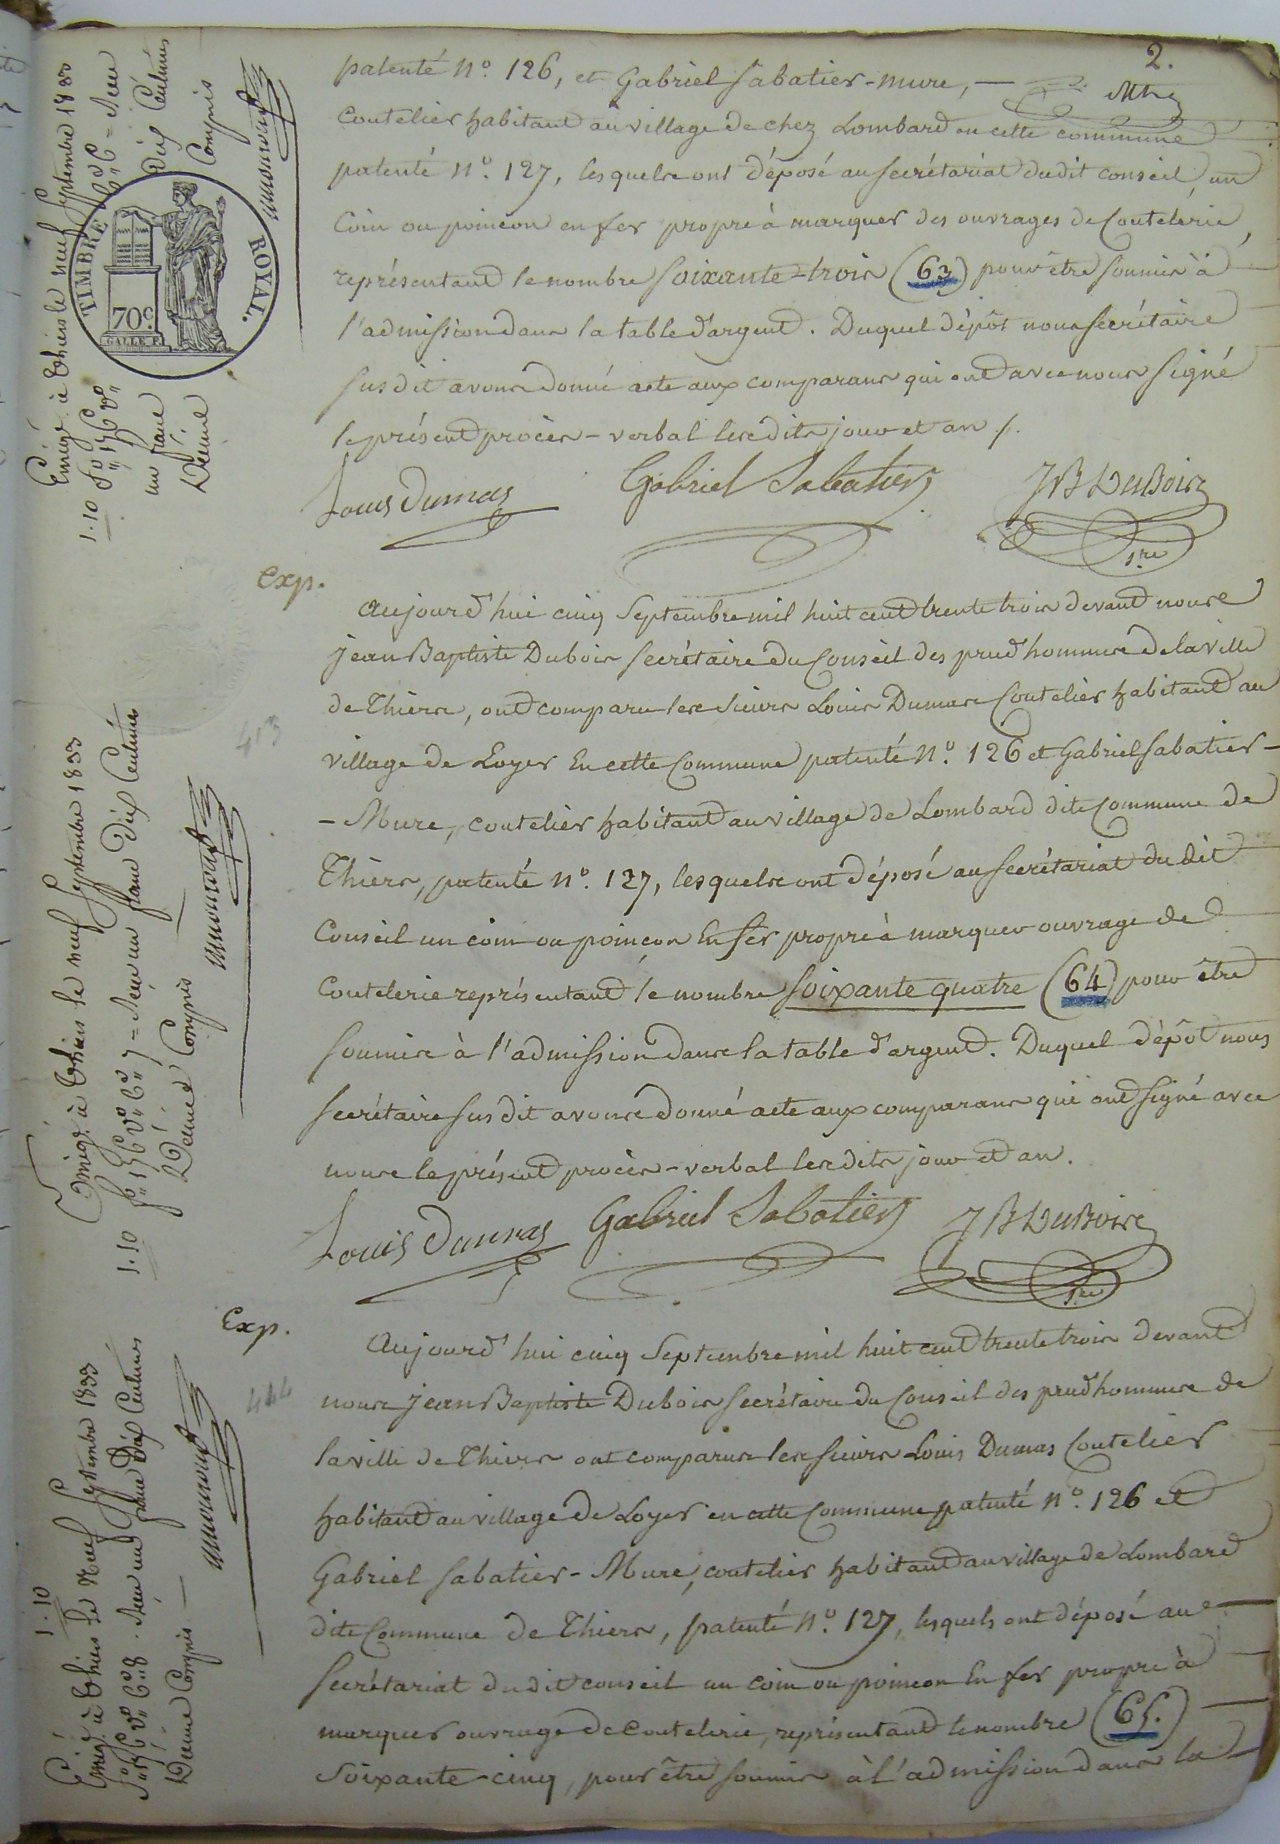 2.
patenté N.º 126, et Gabriel Sabatier-mure, —
Coutelier habitant au village de chez Lombard en cette commune
patenté N.º 127, lesquels ont déposé au secrétariat dudit conseil, un
Coin ou poincon en fer propre à marquer des ouvrages de Coutelerie,
représentant le nombre soixante-trois (63) pour être soumis à
l'admission dans la table d'argent. Duquel dépôt nous secrétaire
susdit avons donné acte aux comparans qui ont avec nous signé
le présent procès-verbal lesdits jour et an /.
Louis Dumas Gabriel Sabatier J B Dubois
S.re
Exp.
Aujourd'hui cinq Septembre mil huit cent trente trois devant nous
Jean Baptiste Dubois secrétaire du Conseil des prud'hommes de la ville
de Thiers, ont comparu les sieurs Louis Dumas Coutelier habitant au
village de Loyer En cette Commune patenté N.º 126 et Gabriel Sabatier-
-Mure, coutelier habitant au village de Lombard dite Commune de
Thiers, patenté N.º 127, lesquels ont déposé au secrétariat du dit
Conseil un coin ou poincon En fer propre à marquer ouvrage de
Coutelerie représentant le nombre soixante quatre (64) pour être
soumis à l'admission dans la table d'argent. Duquel dépôt nous
secrétaire susdit avons donné acte aux comparans qui ont signé avec
nous le présent procès-verbal lesdits jour et an.
Louis Dumas Gabriel Sabatier J B Dubois
S.re
Exp.
Aujourd'hui cinq Septembre mil huit cent trente trois devant
nous Jean Baptiste Dubois secrétaire du Conseil des prud'hommes de
la ville de Thiers ont comparus les sieurs Louis Dumas Coutelier
habitant au village de Loyer en cette Commune patenté N.º 126 et
Gabriel Sabatier-Mure, coutelier habitant au village de Lombard
dite Commune de Thiers, patenté N.º 127, lesquels ont déposé au
secrétariat du dit conseil un coin ou poincon En fer propre à
marquer ouvrage de Coutelerie, représentant le nombre (65.)
Soixante-cinq, pour être soumis à l'admission dans la
Enregé à Thiers le neuf Septembre 1833
fº 156 vº Cº 6 = Reçu
un franc dix Centimes
Décime Compris
1.10
TIMBRE ROYAL.
70c
GALLE F.
413
Enregé à Thiers le neuf Septembre 1833
fº 156 vº Cº 7 = Reçu un franc Dix Centimes
Décime Compris
1.10
414
1.10
Enregé à Thiers le Neuf Septembre 1833
fº 156 vº Cº 8. Reçu un franc Dix Centimes
Décime Compris —